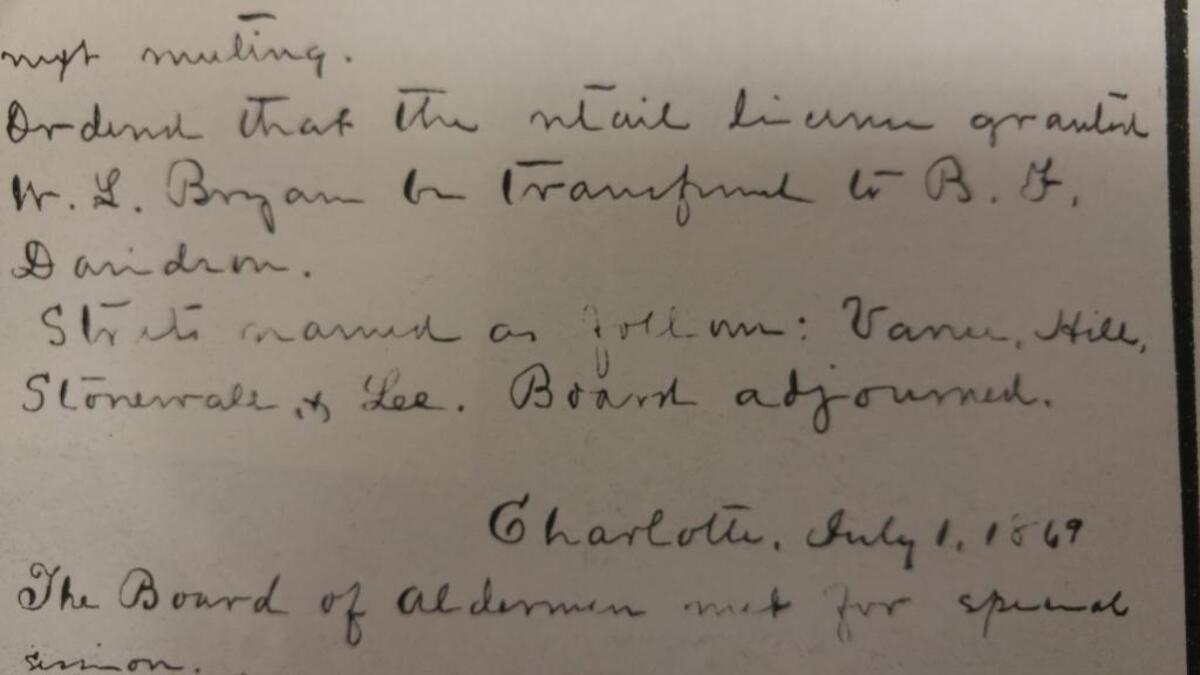 next meeting.
Ordered that the retail license granted
W. L. Bryan be transferred to B. F.
Davidson.
Streets named as follows: Vance, Hill,
Stonewall, & Lee. Board adjourned.
Charlotte, July 1, 1869
The Board of Aldermen met for special
session.